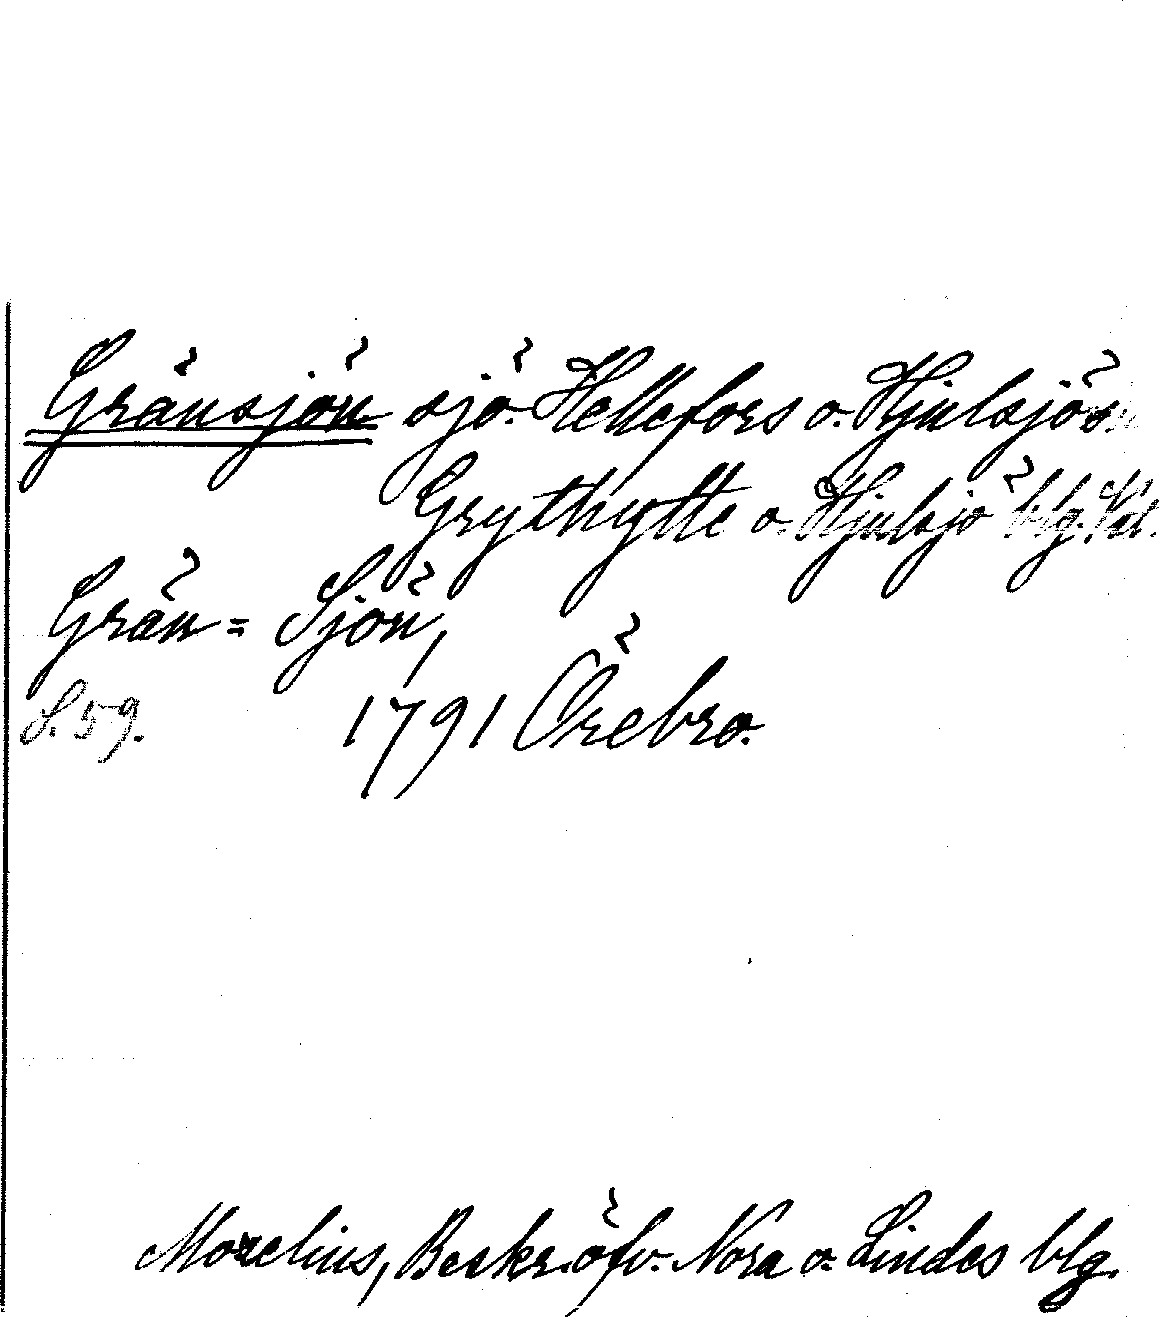 Gränsjön sjö. Hellefors o. Hjulsjös.
Grythytte o. Hjulsjö blg.
Grän = Sjön,
S. 59. 1791 Örebro.
Morelius, Beskr. öfv. Nora o. Lindes blg.